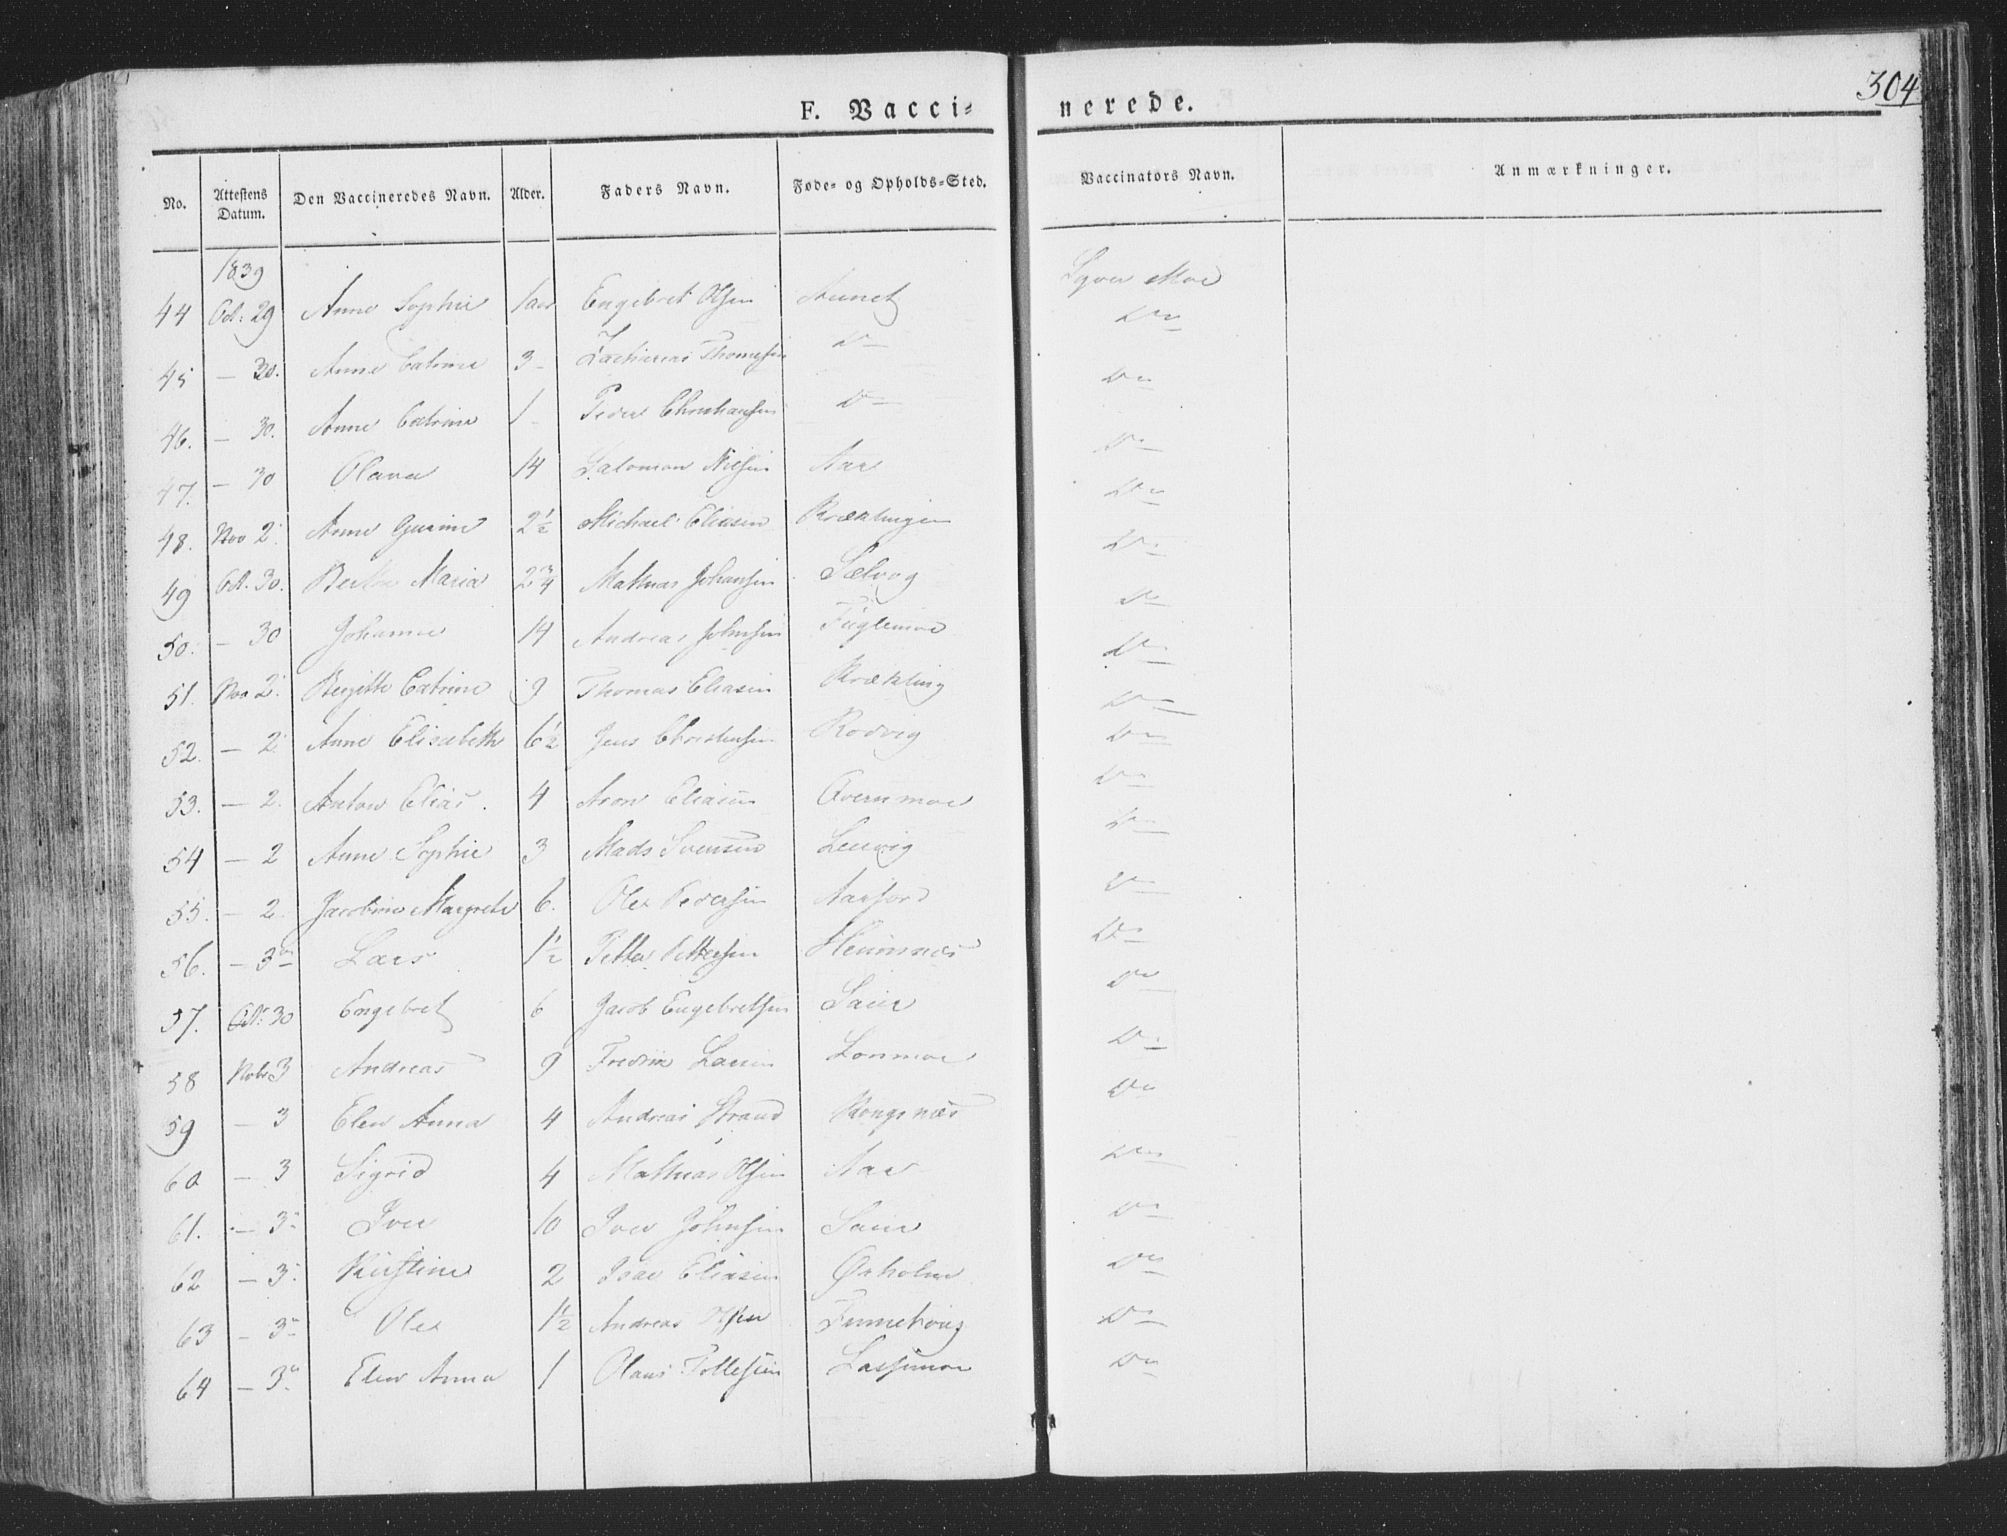 304
F. Vaccinerede.
No. Attestens Datum. Den Vaccineredes Navn. Alder. Faders Navn. Føde- og Opholds-Sted. Vaccinators Navn. Anmærkninger.
1839
44 Oct: 29 Anne Sophie 1 aar Engebret Olsen Aunet Moe
45 — 30. Anne Catrine 3 - Zacharias Thomesen D— D—
46. — 30. Anne Catrine 1 - Peder Christiansen D— D—
47. — 30 Olava 14 Salomon Nielsen Aar D—
48. Nov 2. Anne 2½ Michael Eliasen Kræklingen D—
49 Oct. 30. Maria 2¾ Mathias Johansen Sælvog D—
50. — 30 Johanna 14 Andreas Johnsen Fuglemoe D—
51. Nov 2. Birgitte Catrine 9 Thomas Eliasen Krækling D—
52. — 2. Anne Elisabeth 6½ Jens Christensen Rodvig D—
53. — 2. Anton Elias. 4 Aron Eliasen D—
54 — 2 Anne Sophie 3 Mads Svensen Leervig D—
55. — 2. Jacobine Margrete 6. Ole Pedersen Aarfiord D—
56. — 3 Lars 1½ Petter Pettersen Hemnæs D—
57. Oct: 30 Engebret 6 Jacob Engebretsen D—
58 Nobr 3 Andreas 9 Fredrik Larsen Lonmoe D—
59 — 3 Elen Anna 4 Andreas Strand Kongsnæs D—
60 — 3 Sigrid 4 Mathias Olsen Aar D—
61. — 3 Iver 10 Iver Johnsen D—
62 — 3. Kirstine 2 Isac Eliasen Ørholm D—
63 — 3 Ole 1½ Andreas Olsen D—
64 — 3 Elen Anna 1 Olaus Tollefsen D—